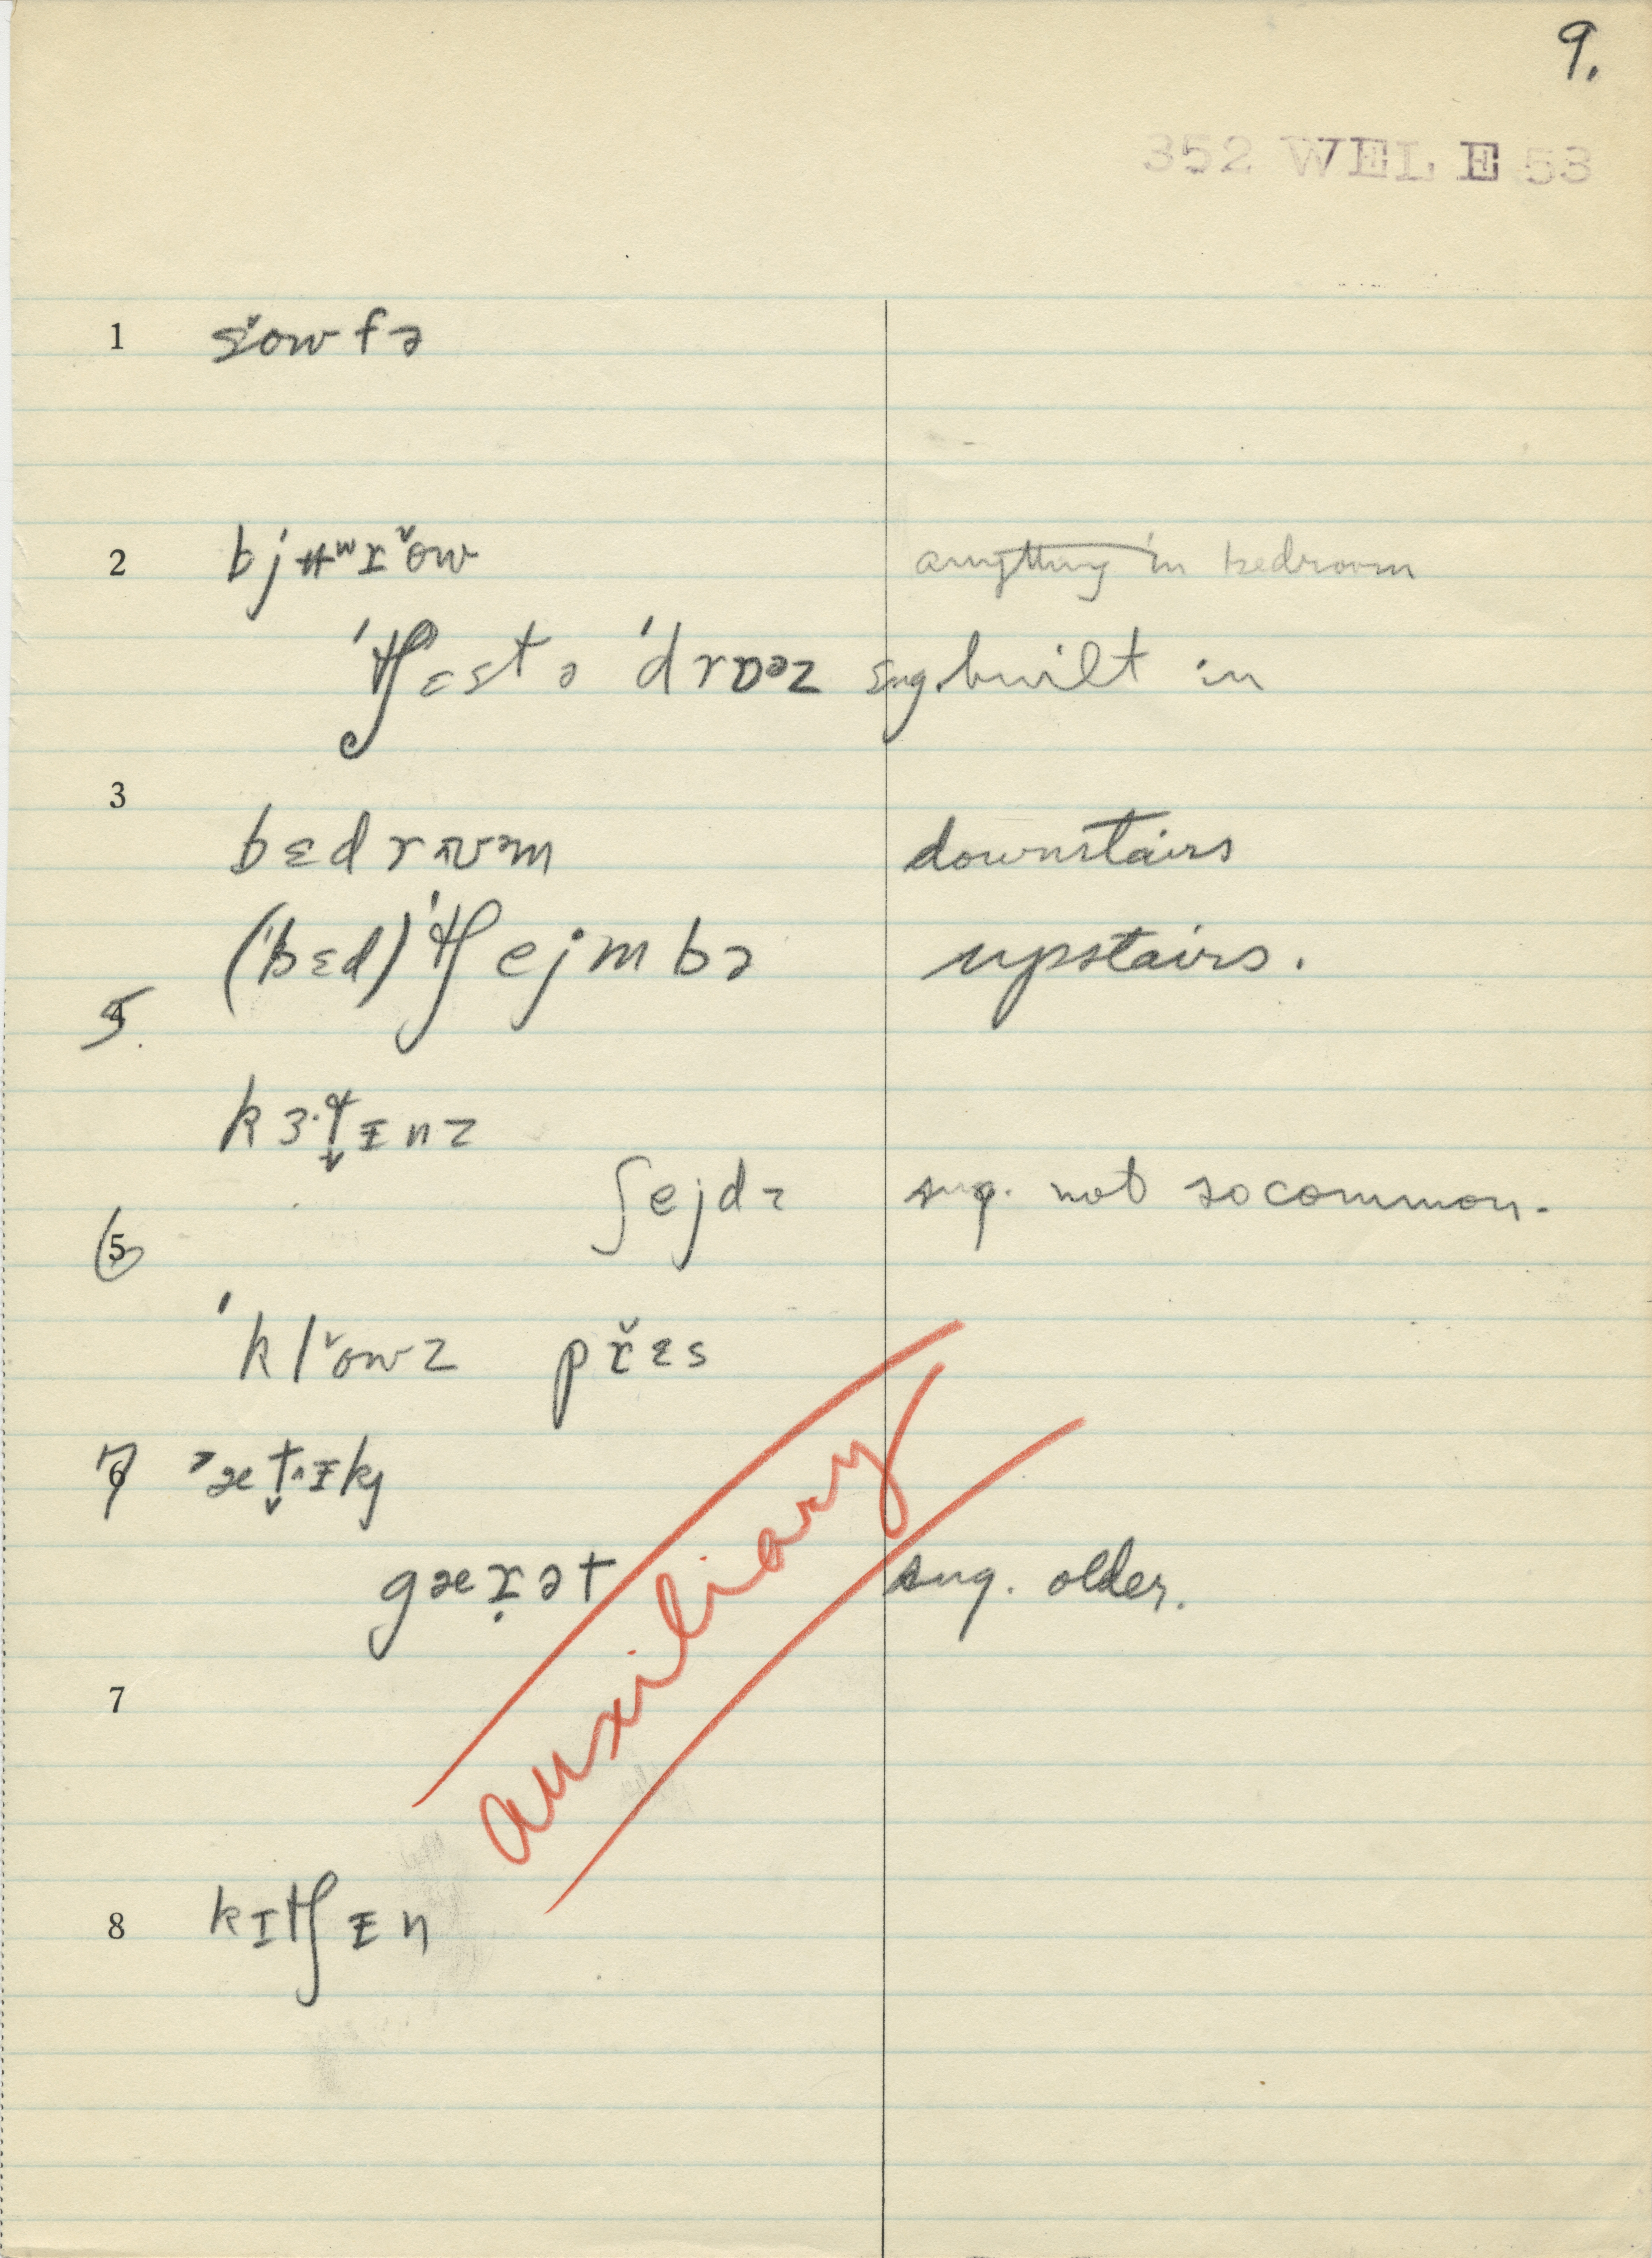 9.
352 WEL E 53
1 sˇowfə
2 bjʉʷɪˇow anything in bedroom
ˈtʃɛst ə ˈdrɒəz sug. built in
3
bɛdrʊᵊm downstairs
(ˈbɛd)ˈtʃejmbə upstairs.
5.
kɜ·tᵻnz
ʃejdz sug. not so common.
6
ˈklˇowz přɛs
7 ˈætᵻkj
gærət sug. older.
auxiliary
7
8 kɪtʃᵻn